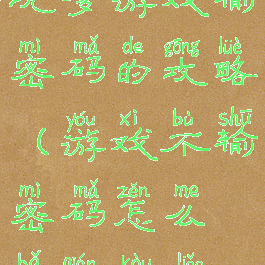 游戏输
mì mǎ de gōng lüè
密码的攻略
yóu xì bù shū
(游戏不输
mì mǎ zěn me
密码怎么